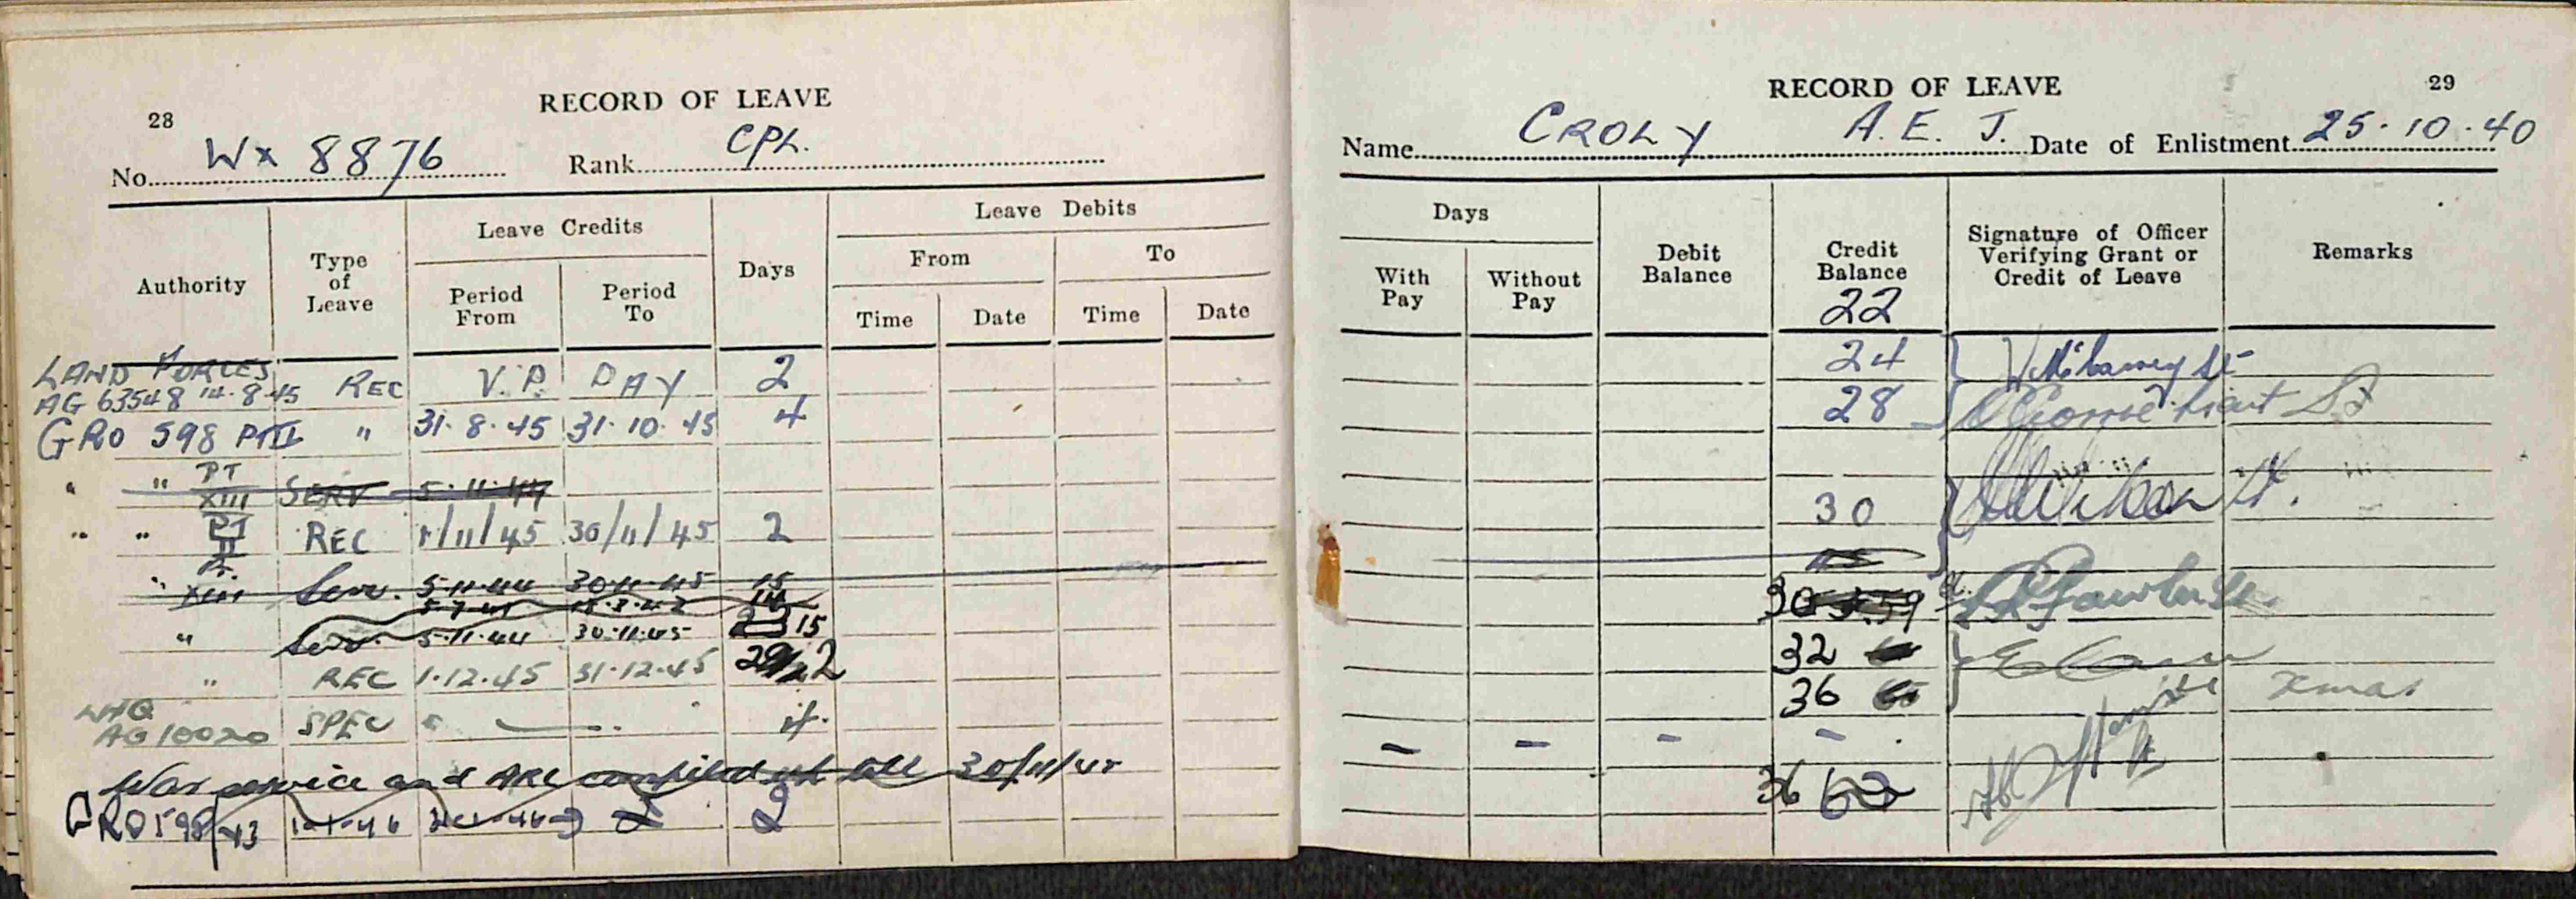 28
RECORD OF LEAVE
No. WX 8876 Rank CPL.
Authority
Type of Leave
Leave Credits
Period From
Period To
Days
Leave Debits
From
To
Time Date Time Date
LAND FORCES
AG 63548 14.8.45 REC V.P. DAY 2
GRO 598 PT II " 31.8.45 31.10.45 4
" " PT XIII SERV 5.11.44
" " PT II REC 1/11/45 30/11/45 2
" Pt. XIII Serv. 5.11.44 30.11.45 15
14
" Serv. 5.11.44 30.11.45 15
" REC 1.12.45 31.12.45 2
LHQ
AG 10020 SPEC 4.
War service and ARL compiled up till 30/11/45
GRO 598/43 1-1-46 2
29
RECORD OF LEAVE
Name CROLY A. E. J. Date of Enlistment 25.10.40
Days
With Pay
Without Pay
Debit Balance
Credit Balance
22
Signature of Officer Verifying Grant or Credit of Leave
Remarks
24
28
30
30 59
32
36 Xmas
- - - -
36